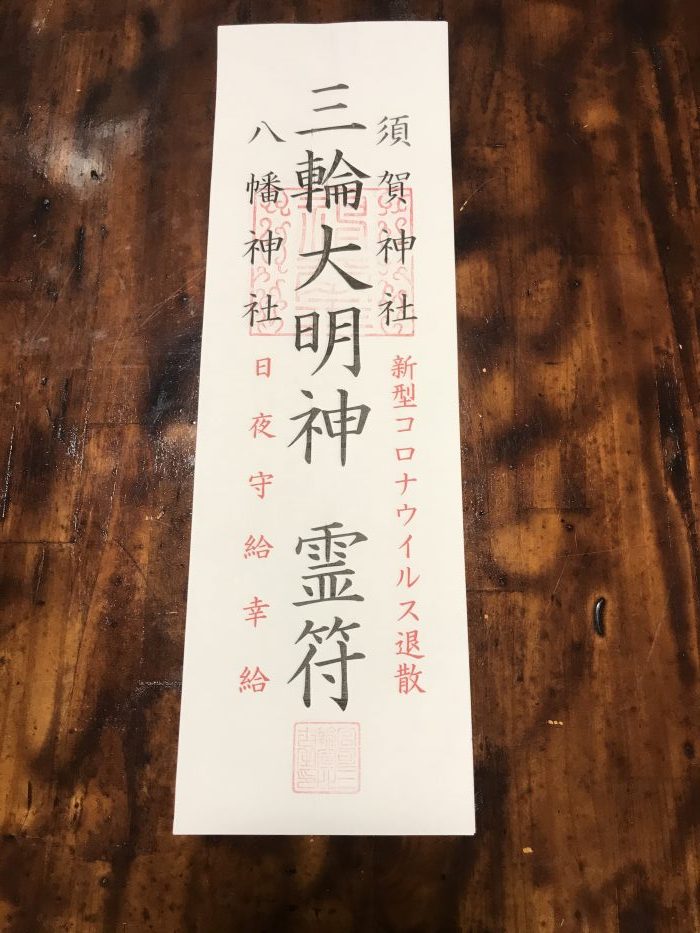 須賀神社
新型コロナウイルス退散
三輪大明神 霊符
八幡神社
日夜守給幸給